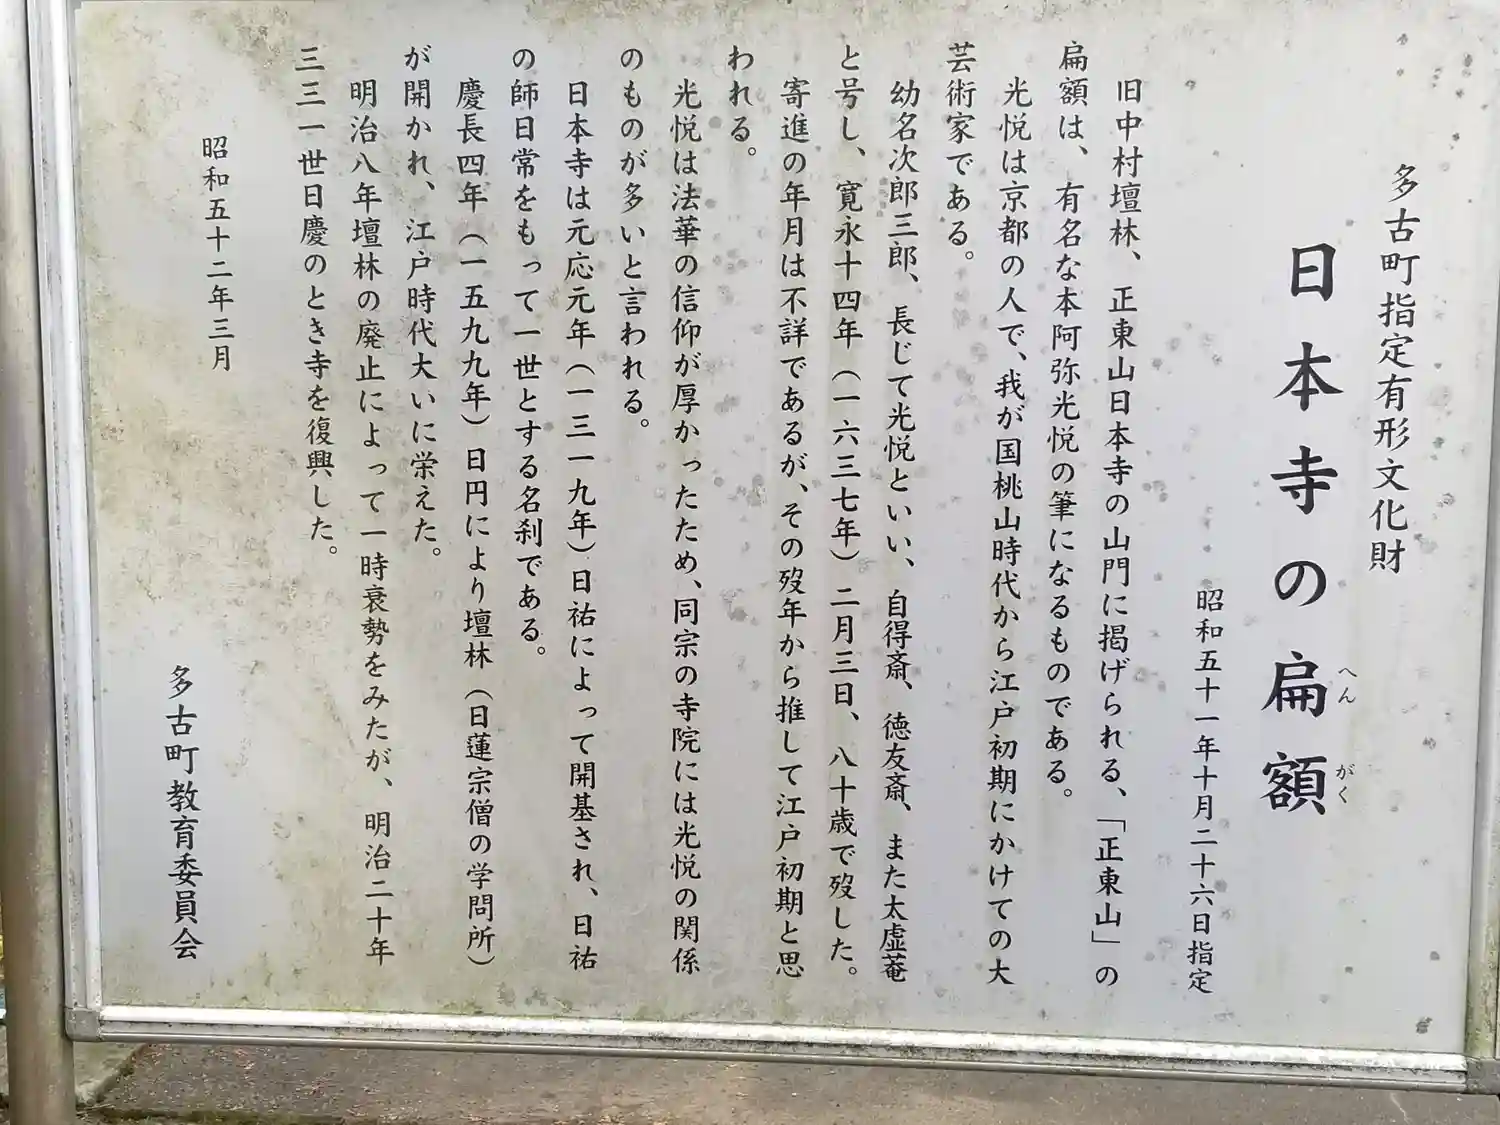 多古町指定有形文化財
日本寺の扁額
へん
がく
昭和五十一年十月二十六日指定
旧中村壇林、正東山日本寺の山門に掲げられる、「正東山」の
扁額は、有名な本阿弥光悦の筆になるものである。
光悦は京都の人で、我が国桃山時代から江戸初期にかけての大
芸術家である。
幼名次郎三郎、長じて光悦といい、自得斎、徳友斎、また太虚菴
と号し、寛永十四年（一六三七年）二月三日、八十歳で歿した。
寄進の年月は不詳であるが、その歿年から推して江戸初期と思
われる。
光悦は法華の信仰が厚かったため、同宗の寺院には光悦の関係
のものが多いと言われる。
日本寺は元応元年（一三一九年）日祐によって開基され、日祐
の師日常をもって一世とする名刹である。
慶長四年（一五九九年）日円により壇林（日蓮宗僧の学問所）
が開かれ、江戸時代大いに栄えた。
明治八年壇林の廃止によって一時衰勢をみたが、明治二十年
三三一世日慶のとき寺を復興した。
昭和五十二年三月
多古町教育委員会